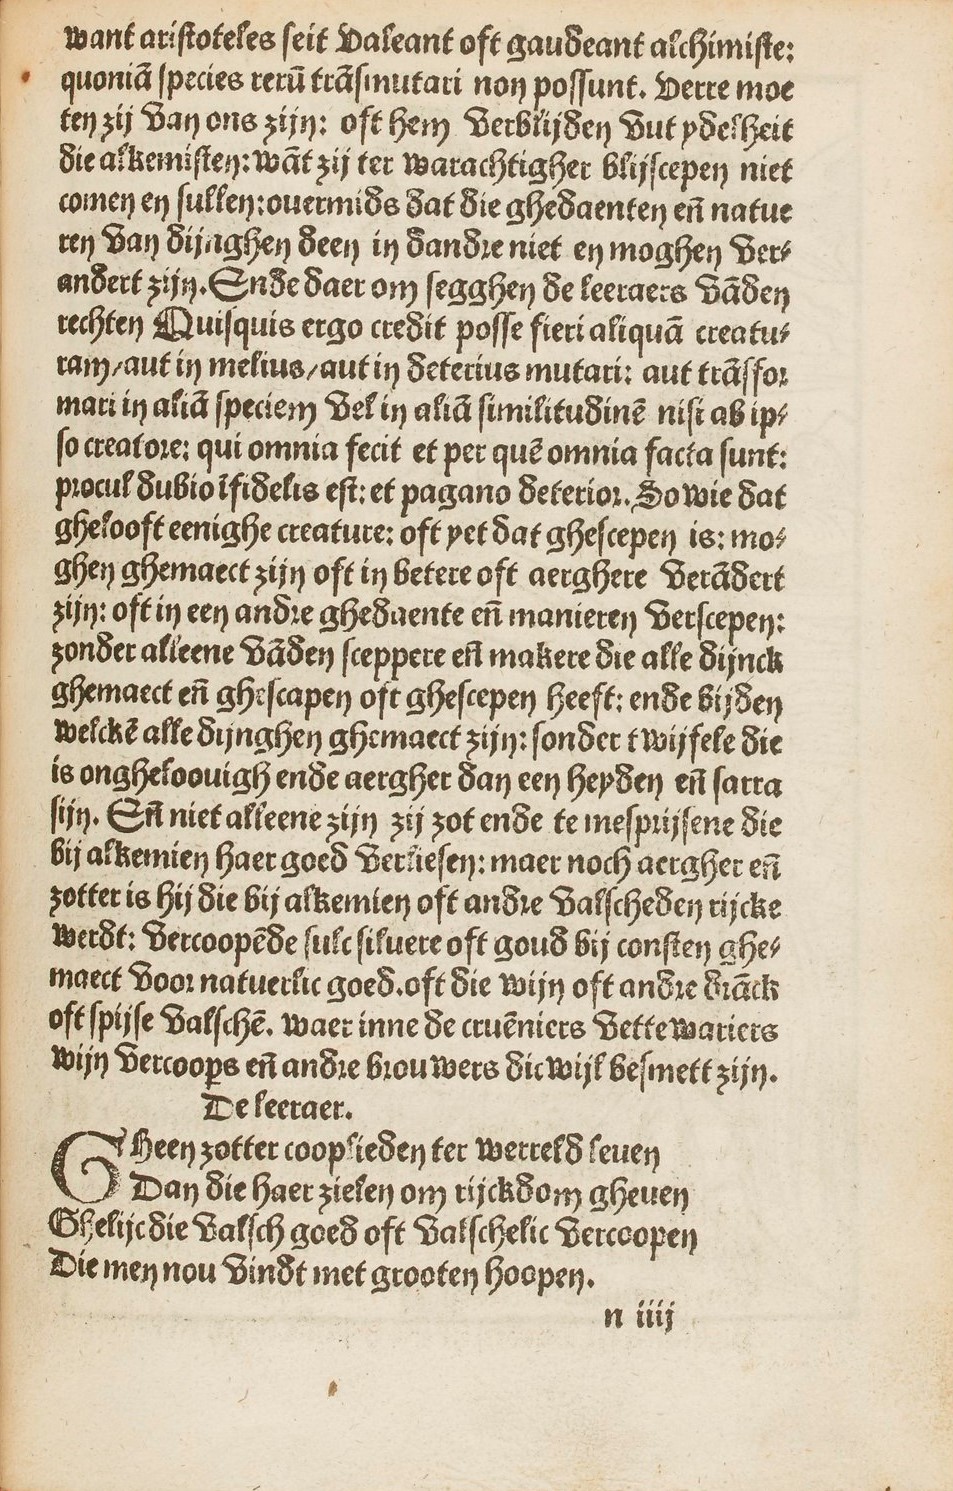 want aristoteles seit Valeant oft gaudeant alchimiste:
quoniā species rerū trāsmutari non possunt. Verre moe
ten zij van ons zijn: oft hem verblijden vut ydelheit
die alkemisten: wāt zij ter warachtigher blijscepen niet
comen en sullen: overmids dat die ghedaenten eñ natue
ren van dijnghen deen in dandre niet en moghen ver⸗
andert zijn. Ende daer om segghen de leeraers vāden
rechten Quisquis ergo credit posse fieri aliquā creatu⸗
ram/aut in melius/aut in deterius mutari: aut trāsfor
mari in aliā speciem vel in aliā similitudinē nisi ab ip⸗
so creatore: qui omnia fecit et per quē omnia facta sunt:
procul dubio īfidelis est: et pagano deterior. So wie dat
ghelooft eenighe creature: oft yet dat ghescepen is: mo⸗
ghen ghemaect zijn oft in betere oft aerghere verādert
zijn: oft in een andre ghedaente eñ manieren verscepen:
zonder alleene vāden sceppere eñ makere die alle dijnck
ghemaect eñ ghescapen oft ghescepen heeft: ende bijden
welckē alle dijnghen ghemaect zijn: sonder twijfele die
is ongheloouigh ende aergher dan een heyden eñ sarra
sijn. Eñ niet alleene zijn zij zot ende te mesprijsene die
bij alkemien haer goed verliesen: maer noch aergher eñ
zotter is hij die bij alkemien oft andre valscheden rijcke
werdt: vercoopēde sulc siluere oft goud bij consten ghe⸗
maect voor natuerlic goed. oft die wijn oft andre drāck
oft spijse valschē. waer inne de cruēniers vettewariers
wijn vercoops eñ andre brouwers dicwijl besmett zijn.
De leeraer.
GHeen zotter cooplieden ter werreld leuen
Dan die haer zielen om rijckdom gheuen
Ghelijc die valsch goed oft valschelic vercoopen
Die men nou vindt met grooten hoopen.
n iiij